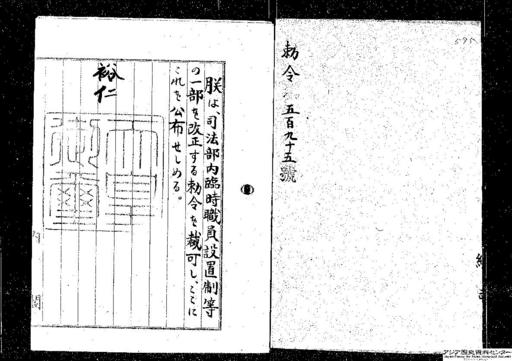 勅令 五百九十五號
朕は、司法部内臨時職員設置制等
の一部を改正する勅令を裁可し、ここに
これを公布せしめる。
裕仁
天皇御璽
内閣
アジア歴史資料センター